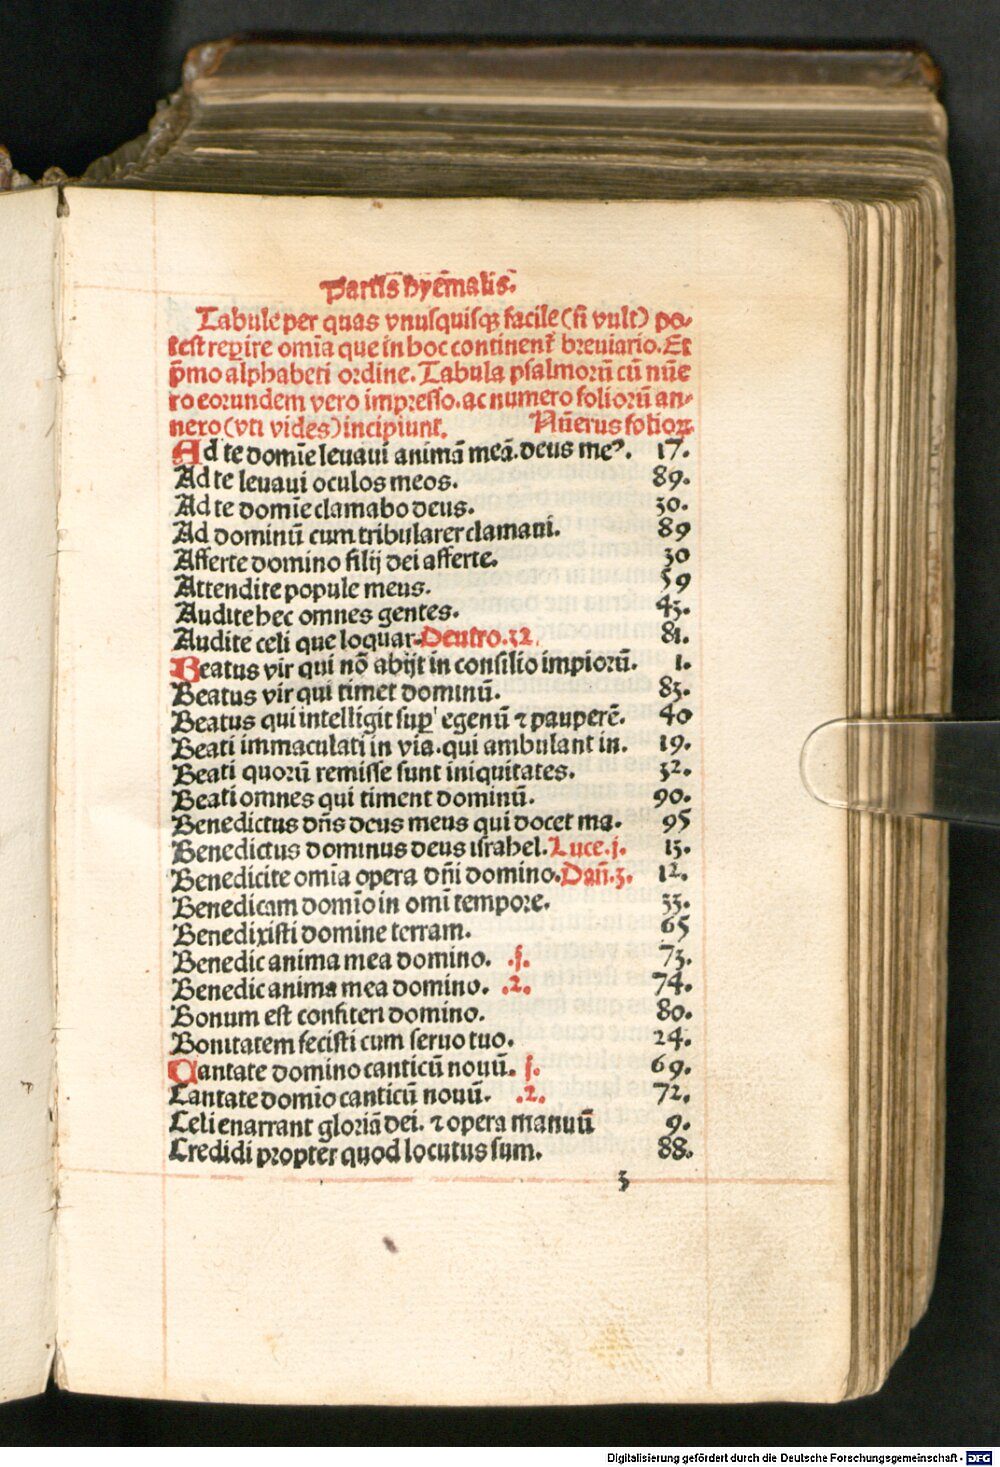 Partis hyēmalis.
Tabule per quas vnusquisqꝫ facile (si vult) po⸗
test reꝑire omīa que in hoc continent᷑ breuiario. Et
p̄mo alphabeti ordine. Tabula psalmorū cū nūe
ro eorundem vero impresso. ac numero foliorū an⸗
nero (vti vides) incipiunt. Nūerus folioꝝ.
Ad te domīe leuaui animā meā. deus meꝰ. 17.
Ad te leuaui oculos meos. 89.
Ad te domīe clamabo deus. 30.
Ad dominū cum tribularer clamaui. 89
Afferte domino filij dei afferte. 30
Attendite popule meus. 59
Audite hec omnes gentes. 43.
Audite celi que loquar. Deutro. 32. 81.
Beatus vir qui nō abijt in consilio impiorū. 1.
Beatus vir qui timet dominū. 83.
Beatus qui intelligit suꝑ egenū ⁊ pauperē. 40
Beati immaculati in via. qui ambulant in. 19.
Beati quorū remisse sunt iniquitates. 32.
Beati omnes qui timent dominū. 90.
Benedictus dn̄s deus meus qui docet ma. 95
Benedictus dominus deus israhel. Luce. j. 15.
Benedicite omīa opera dn̄i domino. Dan̄. 3. 12.
Benedicam domīo in omī tempore. 33.
Benedixisti domine terram. 65
Benedic anima mea domino. .j. 73.
Benedic anima mea domino. .2. 74.
Bonum est confiteri domino. 80.
Bonitatem fecisti cum seruo tuo. 24.
Cantate domino canticū nouū. j. 69.
Cantate domīo canticū nouū. .2. 72.
Celi enarrant gloriā dei. ⁊ opera manuū 9.
Credidi propter quod locutus sum. 88.
3
Digitalisierung gefördert durch die Deutsche Forschungsgemeinschaft - DFG